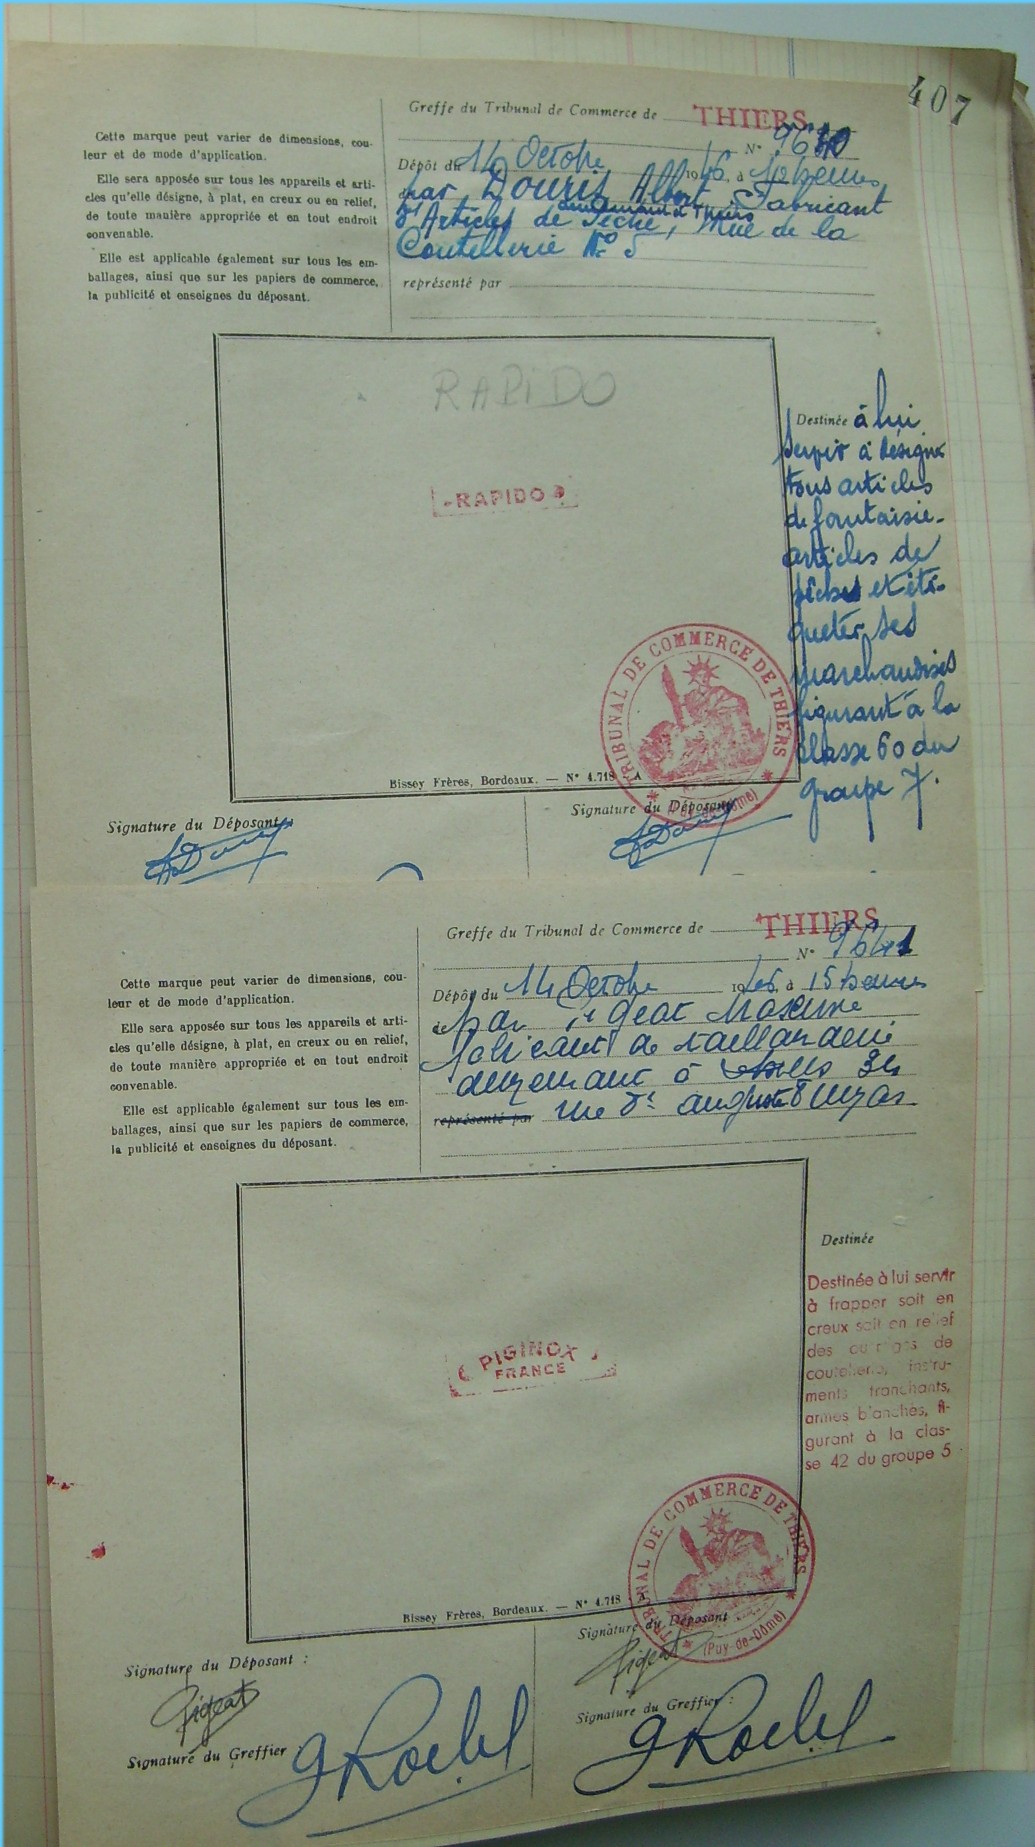 407
Greffe du Tribunal de Commerce de THIERS
N° 9640
Dépôt du 14 Octobre 1946, à 10 heures
par Douris Albert, Fabricant
d'Articles de Pêche, demeurant à Thiers, Rue de la
Coutellerie N° 5
représenté par
Cette marque peut varier de dimensions, cou-
leur et de mode d'application.
Elle sera apposée sur tous les appareils et arti-
cles qu'elle désigne, à plat, en creux ou en relief,
de toute manière appropriée et en tout endroit
convenable.
Elle est applicable également sur tous les em-
ballages, ainsi que sur les papiers de commerce,
la publicité et enseignes du déposant.
RAPIDO
RAPIDO
Destinée à lui
servir à désigner
tous articles
de fantaisie-
articles de
pêches et éti-
queter ses
marchandises
figurant à la
classe 60 du
groupe 7.
TRIBUNAL DE COMMERCE DE THIERS
(Puy-de-Dôme)
Bissey Frères, Bordeaux. — N° 4.718 A
Signature du Déposant :
Signature du Déposant
Greffe du Tribunal de Commerce de THIERS
N° 9641
Dépôt du 14 Octobre 1946, à 15 heures
par Pigeat Maxime
fabricant de taillanderie
demeurant à Thiers 34
représenté par rue Dr
Cette marque peut varier de dimensions, cou-
leur et de mode d'application.
Elle sera apposée sur tous les appareils et arti-
cles qu'elle désigne, à plat, en creux ou en relief,
de toute manière appropriée et en tout endroit
convenable.
Elle est applicable également sur tous les em-
ballages, ainsi que sur les papiers de commerce,
la publicité et enseignes du déposant.
PIGINOX
FRANCE
Destinée
Destinée à lui servir
à frapper soit en
creux soit en relief
des ouvrages de
coutellerie, instru-
ments tranchants,
armes blanches, fi-
gurant à la clas-
se 42 du groupe 5
TRIBUNAL DE COMMERCE DE THIERS
(Puy-de-Dôme)
Bissey Frères, Bordeaux. — N° 4.718
Signature du Déposant :
Pigeat
Signature du Greffier :
Signature du Déposant
Pigeat
Signature du Greffier :